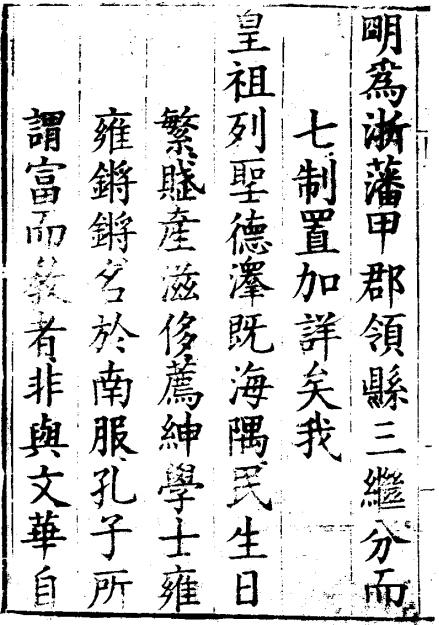 明爲浙藩甲郡領縣三繼分而
七制置加詳矣我
皇祖列聖德澤既海隅民生日
繁賦產滋侈薦紳學士雍
雍鏘鏘名於南服孔子所
謂富而教者非與文華自